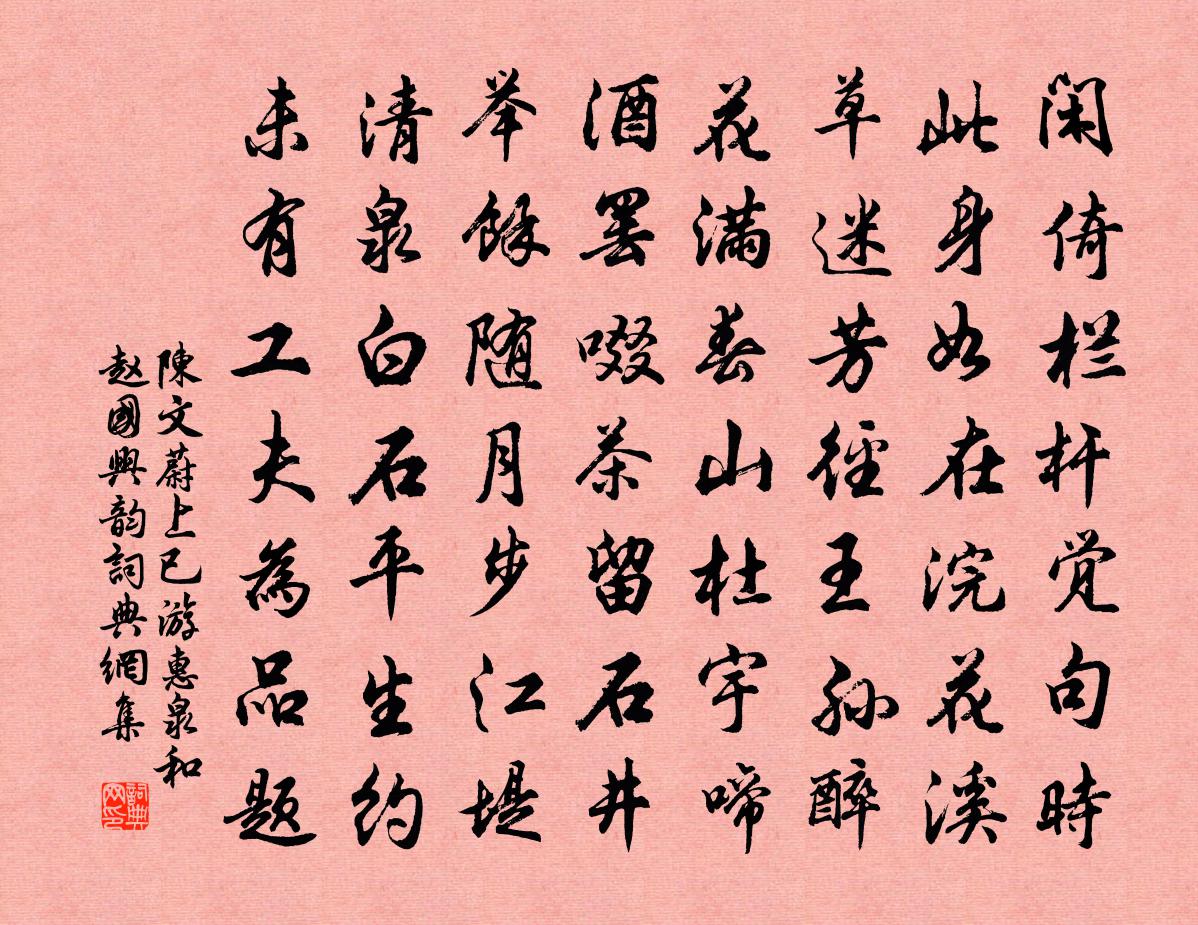 闲倚栏杆觉句时
此身如在浣花溪
草迷芳径王孙醉
花满春山杜宇啼
酒罢啜茶留石井
举馀随月步江堤
清泉白石平生约
未有工夫為品题
陳文蔚上巳游惠泉和
赵國興韵詞典網集
詞典
网印